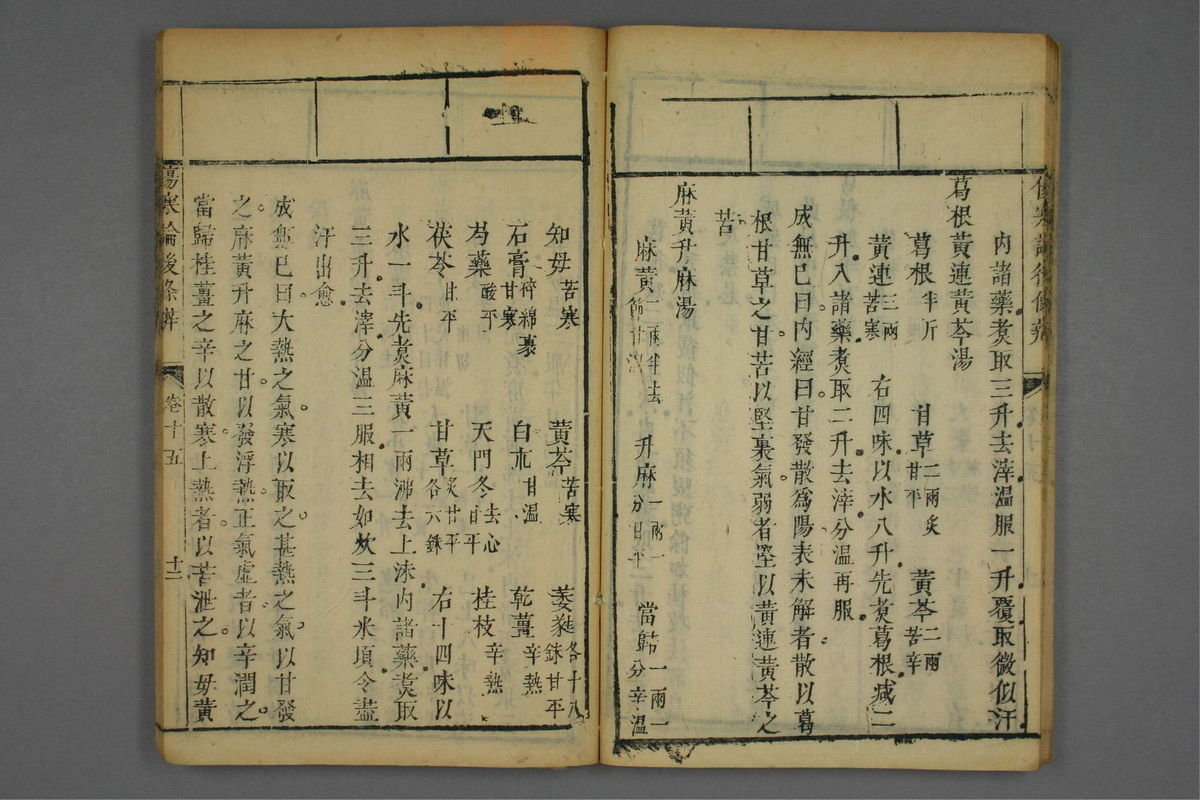 傷寒論後條辨
內諸藥煑取三升去滓溫服一升覆取微似汗
葛根黃連黃芩湯
葛根半斤 甘草二兩炙甘平 黃芩二兩苦辛
黃連三兩苦寒 右四味以水八升先煑葛根減二
升入諸藥煑取二升去滓分溫再服
成無巳曰內經曰甘發散爲陽表未解者散以葛
根甘草之甘苦以堅裏氣弱者堅以黃連黃芩之
苦
麻黃升麻湯
麻黃二兩半去節甘溫 升麻一兩一分甘平 當歸一兩一分辛溫
知母苦寒 黃芩苦寒 萎蕤各十八銖甘平
石膏碎綿裹甘寒 白朮甘溫 乾薑辛熱
芍藥酸平 天門冬去心甘平 桂枝辛熱
茯苓甘平 甘草炙甘平各六銖 右十四味以
水一斗先煑麻黃一兩沸去上沫內諸藥煑取
三升去滓分溫三服相去如炊三斗米頃令盡
汗出愈
成無巳曰大熱之氣寒以取之甚熱之氣以甘發
之麻黃升麻之甘以發浮熱正氣虛者以辛潤之
當歸桂薑之辛以散寒上熱者以苦泄之知母黃
傷寒論後條辨 卷十五 十二